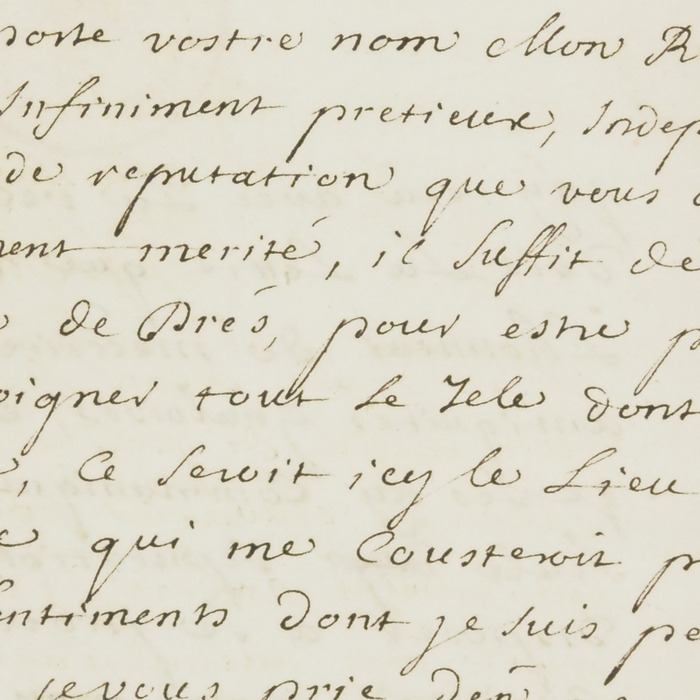 porte vostre nom Mon R
Infiniment pretieux, Indep
de reputation que vous
ment merité, il Suffit de
de Prés, pour estre p
oigner tout Le Zele dont
, Ce Seroit icy le Lieu
qui me Cousteroit p
entiments dont je Suis pe
je vous prie den